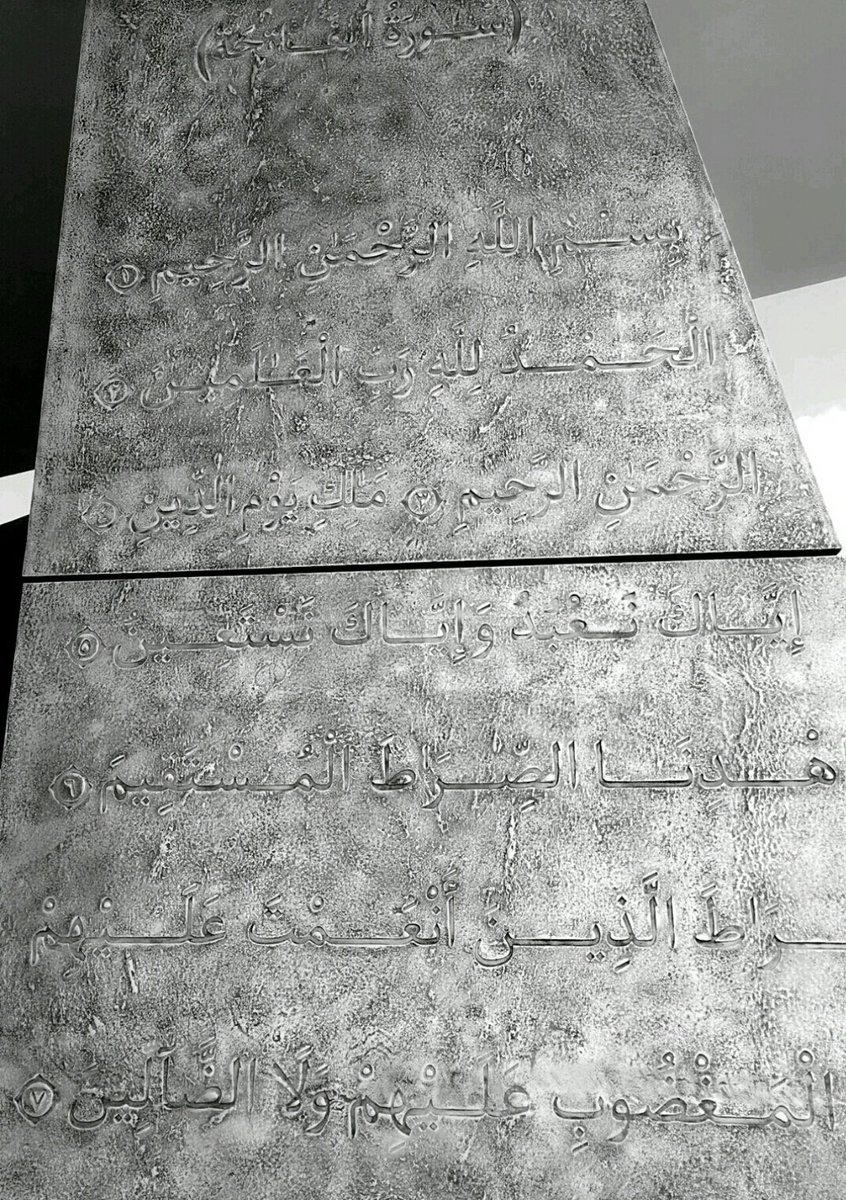 (سُورَةُ الفَاتِحَةِ)
بِسْمِ اللَّهِ الرَّحْمَٰنِ الرَّحِيمِ ١
الْحَمْدُ لِلَّهِ رَبِّ الْعَالَمِينَ ٢
الرَّحْمَٰنِ الرَّحِيمِ ٣ مَالِكِ يَوْمِ الدِّينِ ٤
إِيَّاكَ نَعْبُدُ وَإِيَّاكَ نَسْتَعِينُ ٥
هْدِنَا الصِّرَاطَ الْمُسْتَقِيمَ ٦
ـرَاطَ الَّذِينَ أَنْعَمْتَ عَلَيْهِمْ
الْمَغْضُوبِ عَلَيْهِمْ وَلَا الضَّالِّينَ ٧